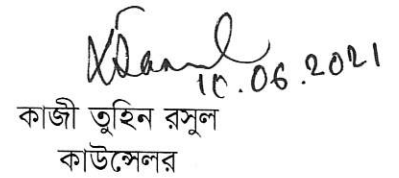 10.06.2021
কাজী তুহিন রসুল
কাউন্সেলর